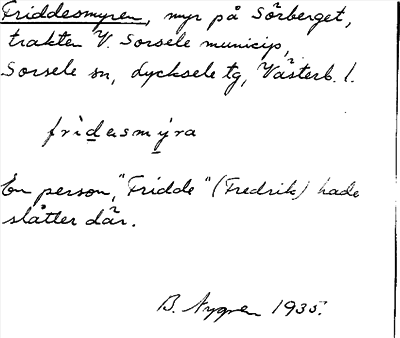 Friddesmyren, myr på Sörberget,
trakten V. Sorsele municip,
Sorsele sn, Lycksele tg, Västerb. l.
fridesmýra
En person, "Fridde" (Fredrik) hade
slåtter där.
B. Nygren 1935.